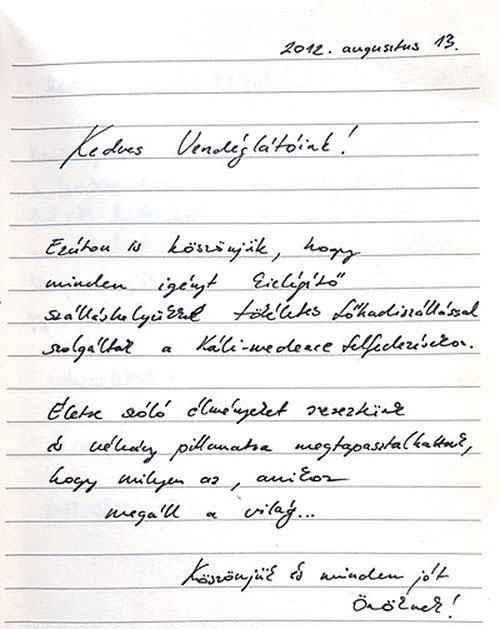 2012. augusztus 13.
Kedves Vendéglátóink!
Ezúton is köszönjük, hogy
minden igényt kielégítő
szálláshelyükkel tökéletes főhadiszállással
szolgáltak a Káli-medence felfedezésekor.
Életre szóló élményeket szereztünk
és néhány pillanatra megtapasztalhattuk,
hogy milyen az, amikor
megáll a világ...
Köszönjük és minden jót
Önöknek!